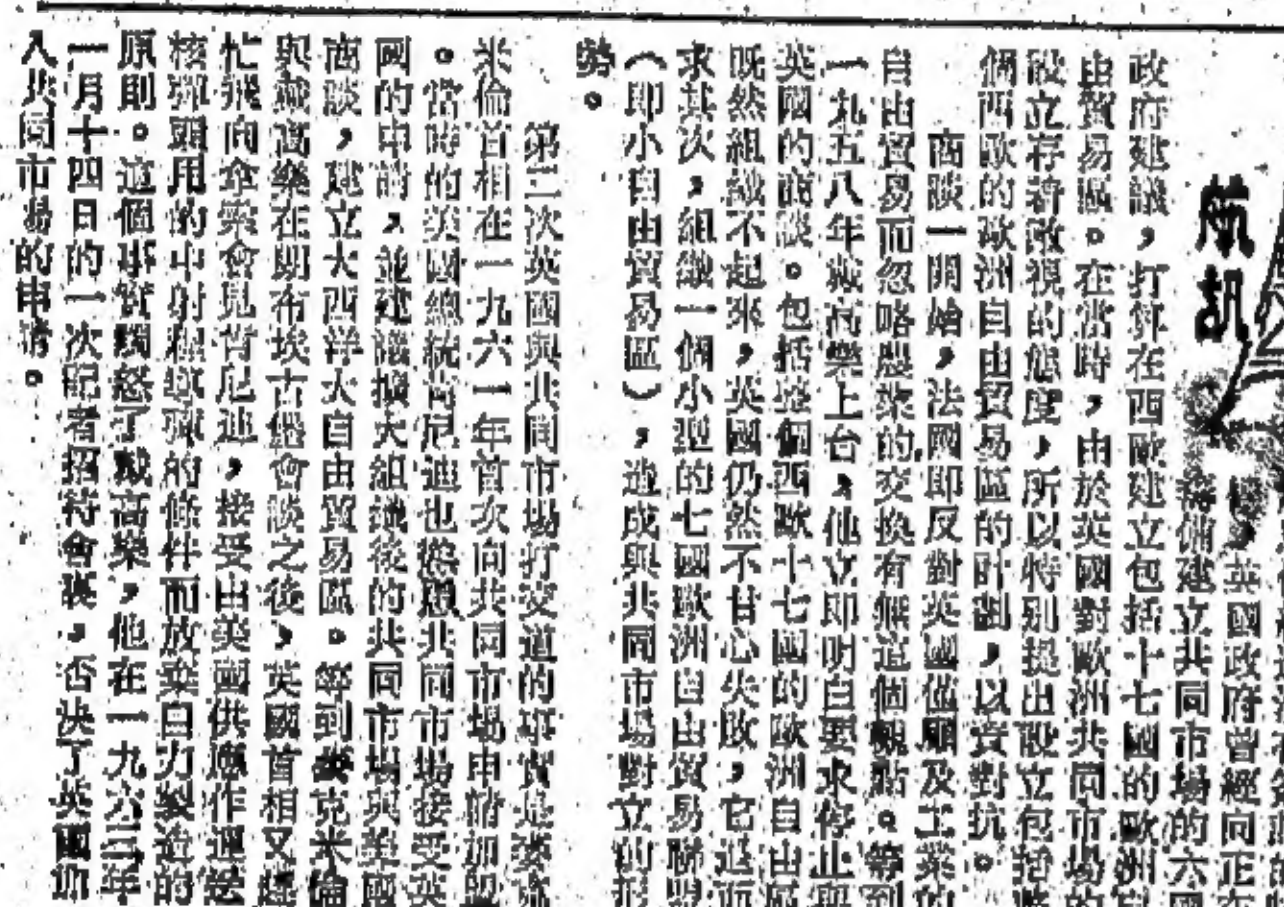 航訊
英國政府曾經同正在
籌備建立共同市場的六國
政府建議，打算在西歐建立包括十七國的歐洲自
由貿易區。在當時，由於英國對歐洲共同市場的
設立存着敵視的態度，所以特別提出設立包括整
個西歐的歐洲自由貿易區的計劃，以資對抗。
商談一開始，法國即反對英國僅顧及工業的
自由貿易而忽略農業的交換有個這個觀點。等到
一九五八年戴高樂上台，他立即明白要求停止與
英國的商談。包括整個西歐十七國的歐洲自由區
既然組織不起來，英國仍然不甘心失敗，它退而
求其次，組織一個小型的七國歐洲自由貿易聯盟
（即小自由貿易區），造成與共同市場對立的形
勢。
第二次英國與共同市場打交道的事實是麥克
米倫首相在一九六一年首次向共同市場申請加盟
。當時的美國總統肯尼迪也慫恿共同市場接受英
國的申請，並建議擴大組織後的共同市場與美國
商談，建立大西洋大自由貿易區。等到麥克米倫
與戴高樂在朗布埃古堡會談之後，英國首相又匆
忙飛向拿索會見肯尼迪，接受由美國供應作運送
核彈頭用的中射程導彈的條件而放棄自力製造的
原則。這個事實觸怒了戴高樂，他在一九六三年
一月十四日的一次記者招待會裏，否決了英國加
入共同市場的申請。